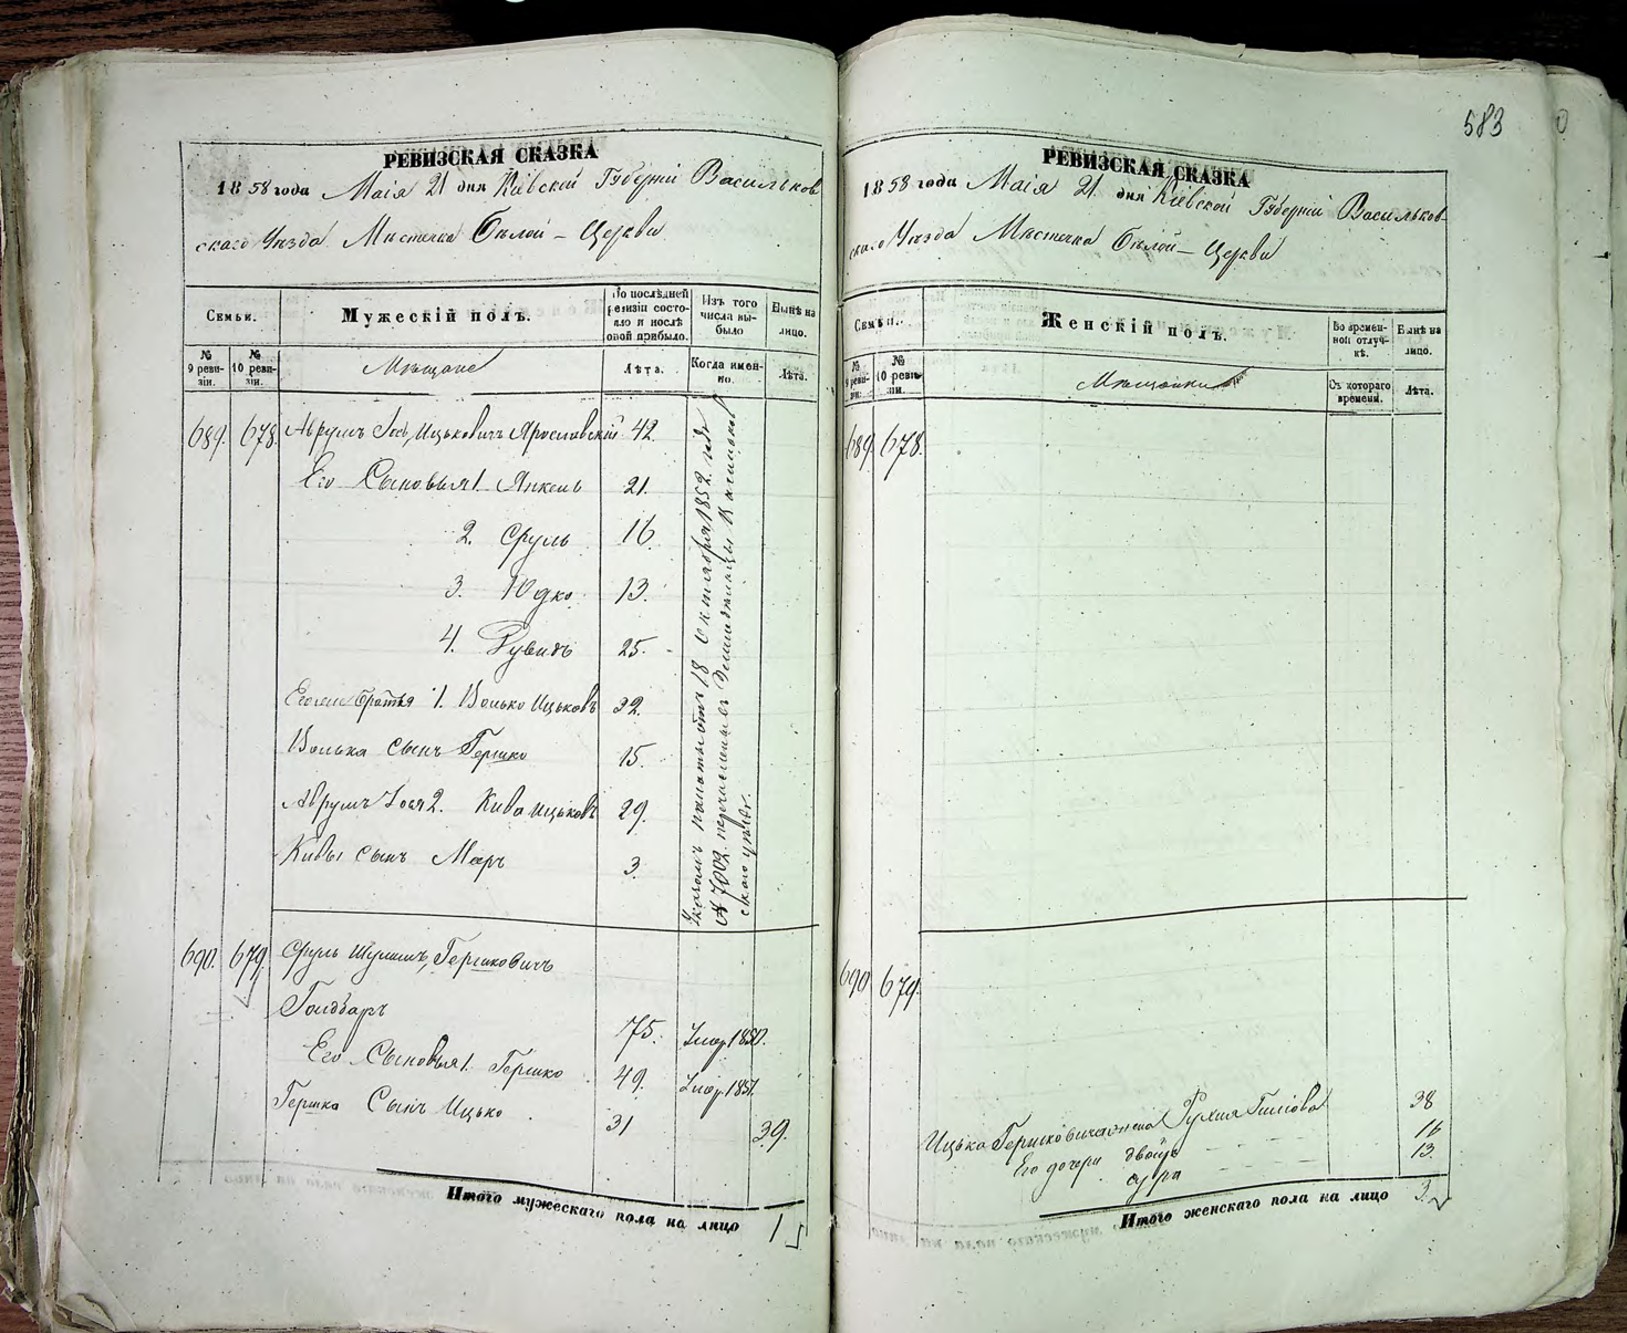 583
РЕВИЗСКАЯ СКАЗКА
1858 года Маія 21 дня Кіевской Губерніи Васильков
скаго Уѣзда Мѣстечка Бѣлой-Церкви
Семьи.
Мужескій полъ.
По послѣдней ревизіи состояло и послѣ оной прибыло.
Изъ того числа выбыло
Нынѣ на лицо.
№ 9 ревизіи.
№ 10 ревизіи.
Мѣщане
Лѣта.
Когда именно.
Лѣта.
689. 678. Аврумъ Іосъ Ицьковичъ Ярославскій 42.
Его Сыновья 1. Янкель 21.
2. Сруль 16.
3. Юдко 13.
4. Рувинъ 25.
братья 1. Волько Ицьковъ 32.
Волька сынъ Гершко 15.
Аврумъ Іося 2. Кива Ицьковъ 29.
Кивы сынъ Меръ 3.
палаты отъ 18 Октября 1852 года
№ 7002 перечислены въ Земледѣльцы
скаго уѣзда.
690. 679. Сруль Шулимъ Гершковичъ
75. Умер. 1850.
Его Сыновья 1. Гершко 49. Умер. 1851.
Гершка Сынъ Ицько 31 39.
Итого мужескаго пола на лицо 1
РЕВИЗСКАЯ СКАЗКА
1858 года Маія 21 дня Кіевской Губерніи Васильков-
скаго Уѣзда Мѣстечка Бѣлой-Церкви
Семьи.
Женскій полъ.
Во временной отлучкѣ.
Нынѣ на лицо.
№ 9 ревизіи.
№ 10 ревизіи.
Мѣщанки
Съ котораго времени.
Лѣта.
689. 678.
690 679.
Ицька Гершковича жена Рухля 38
Его дочери Двойра 16
Сура 13.
Итого женскаго пола на лицо 3